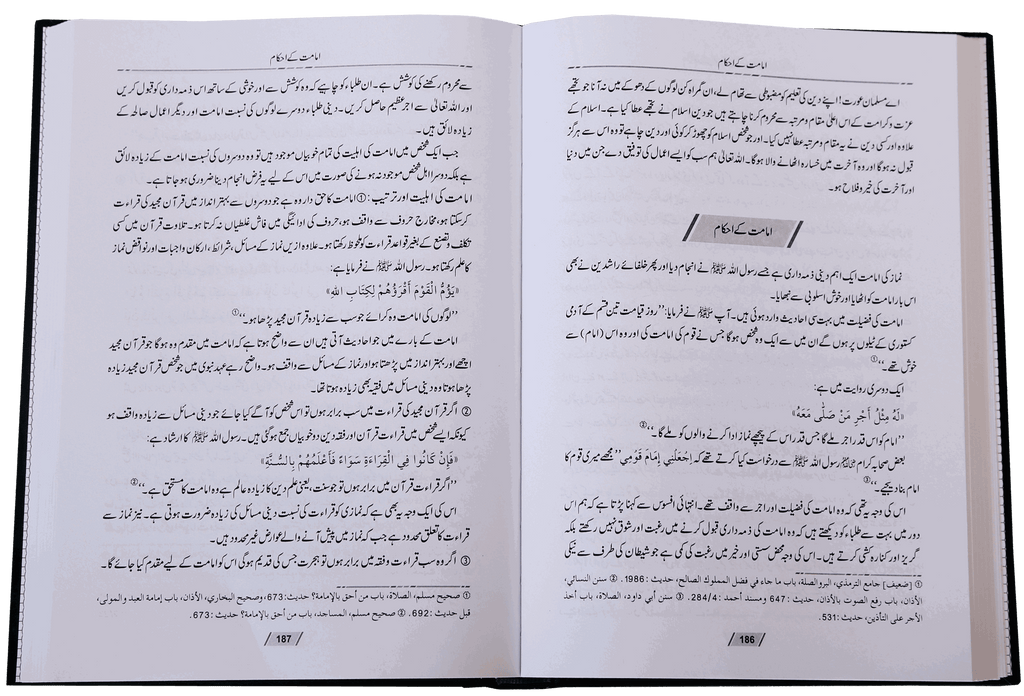 امامت کے احکام
اے مسلمان عورت! اپنے دین کی تعلیم کو مضبوطی سے تھام لے، ان گمراہ کن لوگوں کے دھوکے میں نہ آنا جو تجھے
عزت و کرامت کے اس اعلیٰ مقام و مرتبہ سے محروم کرنا چاہتے ہیں جو دین اسلام نے تجھے عطا کیا ہے۔ اسلام کے
علاوہ اور کسی دین نے یہ مقام و مرتبہ عطا نہیں کیا۔ اور جو شخص اسلام کو چھوڑ کر کوئی اور دین چاہے تو وہ اس سے ہرگز
قبول نہ ہوگا اور وہ آخرت میں خسارہ اٹھانے والا ہوگا۔ اللہ تعالیٰ ہم سب کو ایسے اعمال کی توفیق دے جن میں دنیا
اور آخرت کی خیر و فلاح ہو۔
امامت کے احکام
نماز کی امامت ایک اہم دینی ذمہ داری ہے جسے رسول اللہ ﷺ نے انجام دیا اور پھر خلفائے راشدین نے بھی
اس بار امامت کو اٹھایا اور خوش اسلوبی سے نبھایا۔
امامت کی فضیلت میں بہت سی احادیث وارد ہوئی ہیں۔ آپ ﷺ نے فرمایا: ’’روز قیامت تین قسم کے آدمی
کستوری کے ٹیلوں پر ہوں گے ان میں سے ایک وہ شخص ہوگا جس نے قوم کی امامت کی اور وہ اس (امام) سے
خوش تھے۔‘‘①
ایک دوسری روایت میں ہے:
«لَهُ مِثْلُ أَجْرِ مَنْ صَلَّى مَعَهُ»
’’امام کو اس قدر اجر ملے گا جس قدر اس کے پیچھے نماز ادا کرنے والوں کو ملے گا۔‘‘②
بعض صحابہ کرام رسول اللہ ﷺ سے درخواست کیا کرتے تھے کہ اِجْعَلْنِي إِمَامَ قَوْمِي ’’مجھے میری قوم کا
امام بنا دیجیے۔‘‘③
اس کی وجہ یہ تھی کہ وہ امامت کی فضیلت اور اجر سے واقف تھے۔ انتہائی افسوس سے کہنا پڑتا ہے کہ ہم اس
دور میں بہت سے طلباء کو دیکھتے ہیں کہ وہ امامت کی ذمہ داری قبول کرنے میں رغبت اور شوق نہیں رکھتے بلکہ
گریز اور کنارہ کشی کرتے ہیں۔ اس کی وجہ محض سستی اور خیر میں رغبت کی کمی ہے جو شیطان کی طرف سے نیکی
① [ضعيف] جامع الترمذي، البر والصلة، باب ما جاء في فضل المملوك الصالح، حديث: 1986. ② سنن النسائي،
الأذان، باب رفع الصوت بالأذان، حديث: 647 ومسند أحمد: 284/4. ③ سنن أبي داود، الصلاة، باب أخذ
الأجر على التأذين، حديث: 531.
186
امامت کے احکام
سے محروم رکھنے کی کوشش ہے۔ ان طلباء کو چاہیے کہ وہ کوشش سے اور خوشی کے ساتھ اس ذمہ داری کو قبول کریں
اور اللہ تعالیٰ سے اجر عظیم حاصل کریں۔ دینی طلباء دوسرے لوگوں کی نسبت امامت اور دیگر اعمال صالحہ کے
زیادہ لائق ہیں۔
جب ایک شخص میں امامت کی اہلیت کی تمام خوبیاں موجود ہیں تو وہ دوسروں کی نسبت امامت کے زیادہ لائق
ہے بلکہ دوسرا اہل شخص موجود نہ ہونے کی صورت میں اس کے لیے یہ فرض انجام دینا ضروری ہو جاتا ہے۔
امامت کی اہلیت اور ترتیب: ① امامت کا حق دار وہ ہے جو دوسروں سے بہتر انداز میں قرآن مجید کی قراءت
کر سکتا ہو، مخارج حروف سے واقف ہو، حروف کی ادائیگی میں فاش غلطیاں نہ کرتا ہو۔ تلاوت قرآن میں کسی
تکلف یا تصنع کے بغیر قواعد قراءت کو ملحوظ رکھتا ہو۔ علاوہ ازیں نماز کے مسائل، شرائط، ارکان و اجبات اور نواقض نماز
کا علم رکھتا ہو۔ رسول اللہ ﷺ نے فرمایا ہے:
«يَؤُمُّ الْقَوْمَ أَقْرَؤُهُمْ لِكِتَابِ اللهِ»
’’لوگوں کی امامت وہ کرائے جو سب سے زیادہ قرآن مجید پڑھا ہو۔‘‘①
امامت کے بارے میں جو احادیث آتی ہیں ان سے واضح ہوتا ہے کہ امامت میں مقدم وہ ہوگا جو قرآن مجید
اچھے اور بہتر انداز میں پڑھتا ہو اور نماز کے مسائل سے واقف ہو۔ واضح رہے عہد نبوی میں جو شخص قرآن مجید زیادہ
پڑھا ہوتا وہ دینی مسائل میں فقیہ بھی زیادہ ہوتا تھا۔
② اگر قرآن مجید کی قراءت میں سب برابر ہوں تو اس شخص کو آگے کیا جائے جو دینی مسائل سے زیادہ واقف ہو
کیونکہ ایسے شخص میں قراءت قرآن اور فقہ دین دو خوبیاں جمع ہو گئی ہیں۔ رسول اللہ ﷺ کا ارشاد ہے:
«فَإِنْ كَانُوا فِي الْقِرَاءَةِ سَوَاءً فَأَعْلَمُهُمْ بِالسُّنَّةِ»
’’اگر قراءت قرآن میں برابر ہوں تو جو سنت، یعنی علم دین کا زیادہ عالم ہے وہ امامت کا مستحق ہے۔‘‘②
اس کی ایک وجہ یہ بھی ہے کہ نمازی کو قراءت کی نسبت دینی مسائل کی زیادہ ضرورت ہوتی ہے۔ نیز نماز سے
قراءت کا تعلق محدود ہے جب کہ نماز میں پیش آنے والے عوارض غیر محدود ہیں۔
③ اگر وہ سب قراءت و فقہ میں برابر ہوں تو ہجرت جس کی قدیم ہوگی اس کو امامت کے لیے مقدم کیا جائے گا۔
① صحيح مسلم، الصلاة، باب من أحق بالإمامة؟ حديث: 673، وصحيح البخاري، الأذان، باب إمامة العبد والمولى،
قبل حديث: 692. ② صحيح مسلم، المساجد، باب من أحق بالإمامة؟ حديث: 673.
187